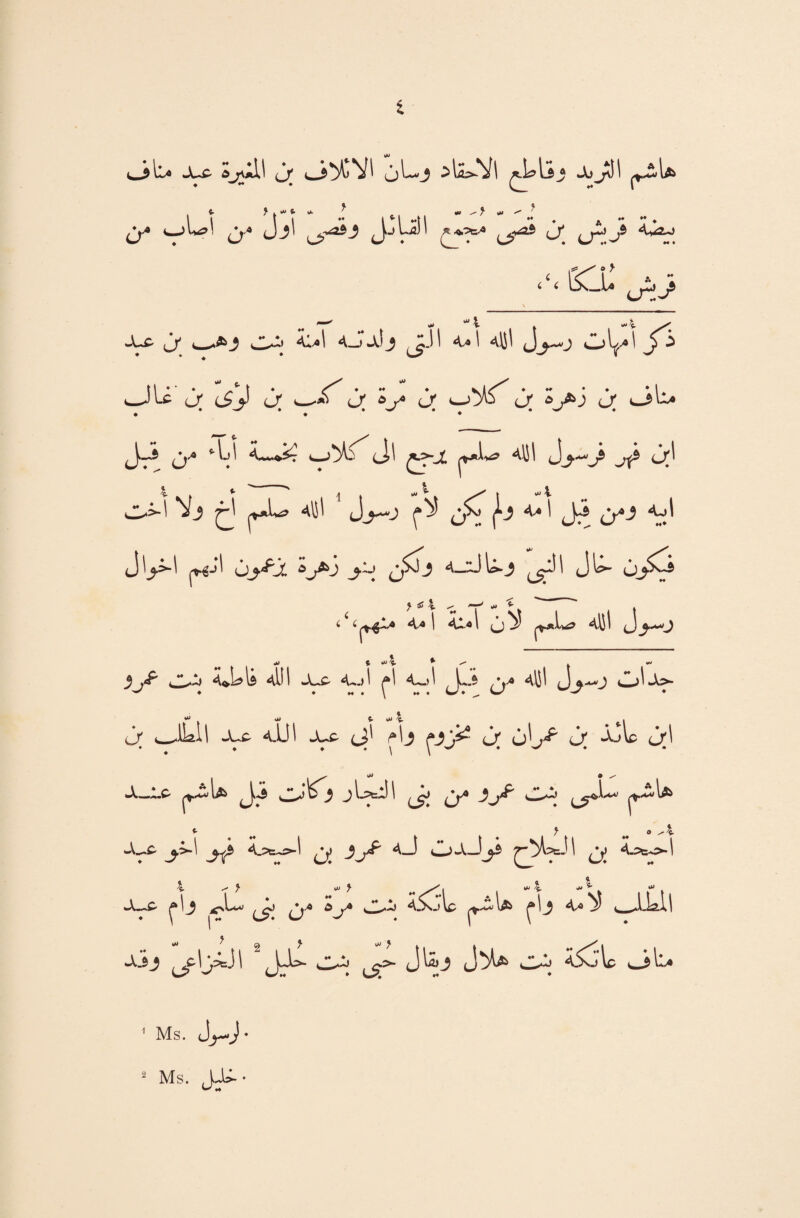 ٤
هاشم الثريد وقاطع الاحقاد وسانّ الايلاف بن المغيرة عبد مناف
بيضة قريش بن قُصَيّ مُجَمِّع القبائل وقُصَيّ أوّلُ من أصاب من
قريش مُلْكًا،،
ذكر أمّهات رسول الله أمّه الّتي ولدَتْه آمنة بنت وهب بن عبد
مناف بن زهرة بن كلاب بن مرّة بن كعب بن لؤيّ بن غالب
ابن فهر فرسول الله صلعم يرجع الى كلاب بخمسة أباء من قبل
ابيه ومن قبل أمّه ولم يكن لأمّ رسول¹ الله صلعم أخ ولا أخت
فيكون خال النبيّ وخالته ولكن بنو زهرة يزعمون انهم اخوال
رسول الله صلعم لأنّ آمنة أُمَّه منهم،،
جدّات رسول الله من قِبل أبيه أمّ أبيه عبد الله فاطمة بنت عمرو
ابن عائذ بن عمران بن مخزوم وأمّ أبي عبد الله عبد المطّلب بن
هاشم سلمى بنت عمرو من بني النجّار وكانت قبل هاشم عند
أُحيحة بن الجُلاح فولدت له عمرو بن احيحة فهو اخو عبد
المطّلب لأمّه وأمّ هاشم عاتكة بنت مُرّة من بني سُلَيم وأمّ عبد
مناف عاتكة بنت هلال ويقال حُبَّى بنت حُلَيل² الخُزاعيّ وقد
¹ Ms. لرسول.
² Ms. خليل.